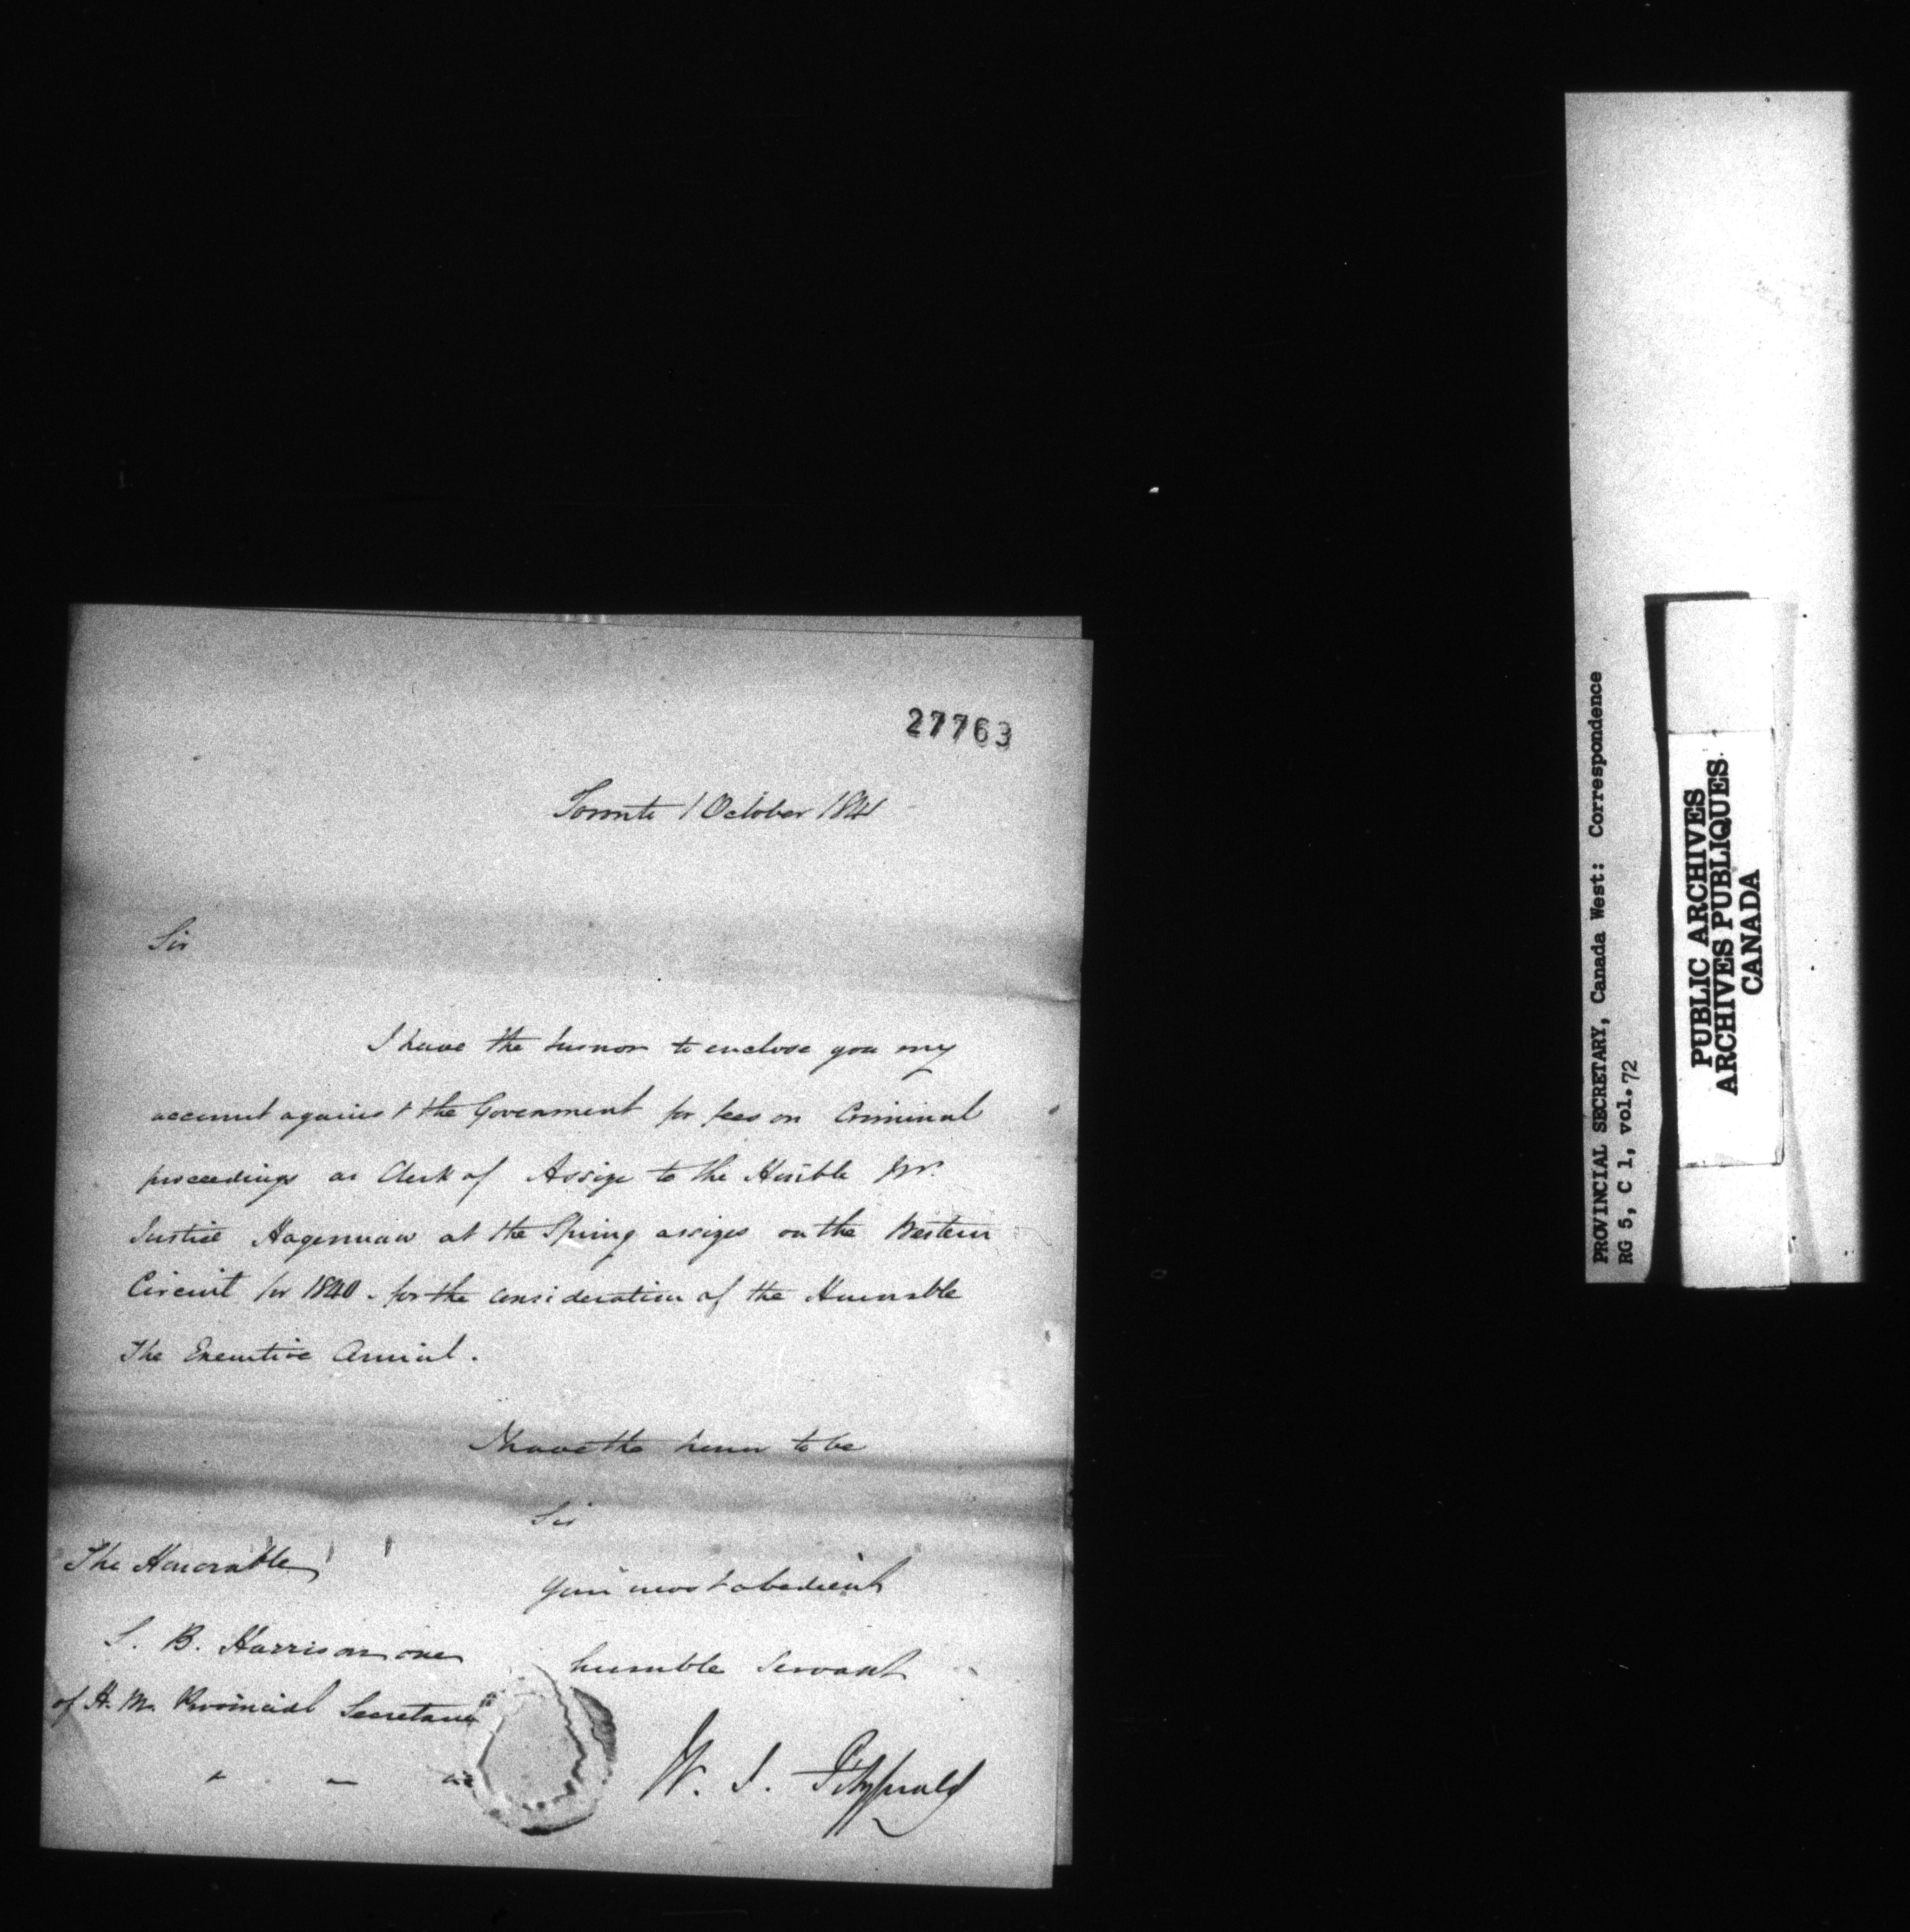 27763
Toronto 1 October 1841
Sir
I have the honor to enclose you my
account against the Government for fees on Criminal
proceedings as Clerk of Assize to the Honble Mr.
Justice Hagerman at the Spring assizes on the Western
Circuit for 1840 - for the consideration of the Honorable
The Executive Council.
I have the honor to be
Sir
Your most obedient
humble servant
W. J. Fitzgerald
The Honorable
S. B. Harrison one
of H. M. Provincial Secretaries
PROVINCIAL SECRETARY, Canada West: Correspondence
RG 5, C 1, vol. 72
PUBLIC ARCHIVES
ARCHIVES PUBLIQUES
CANADA